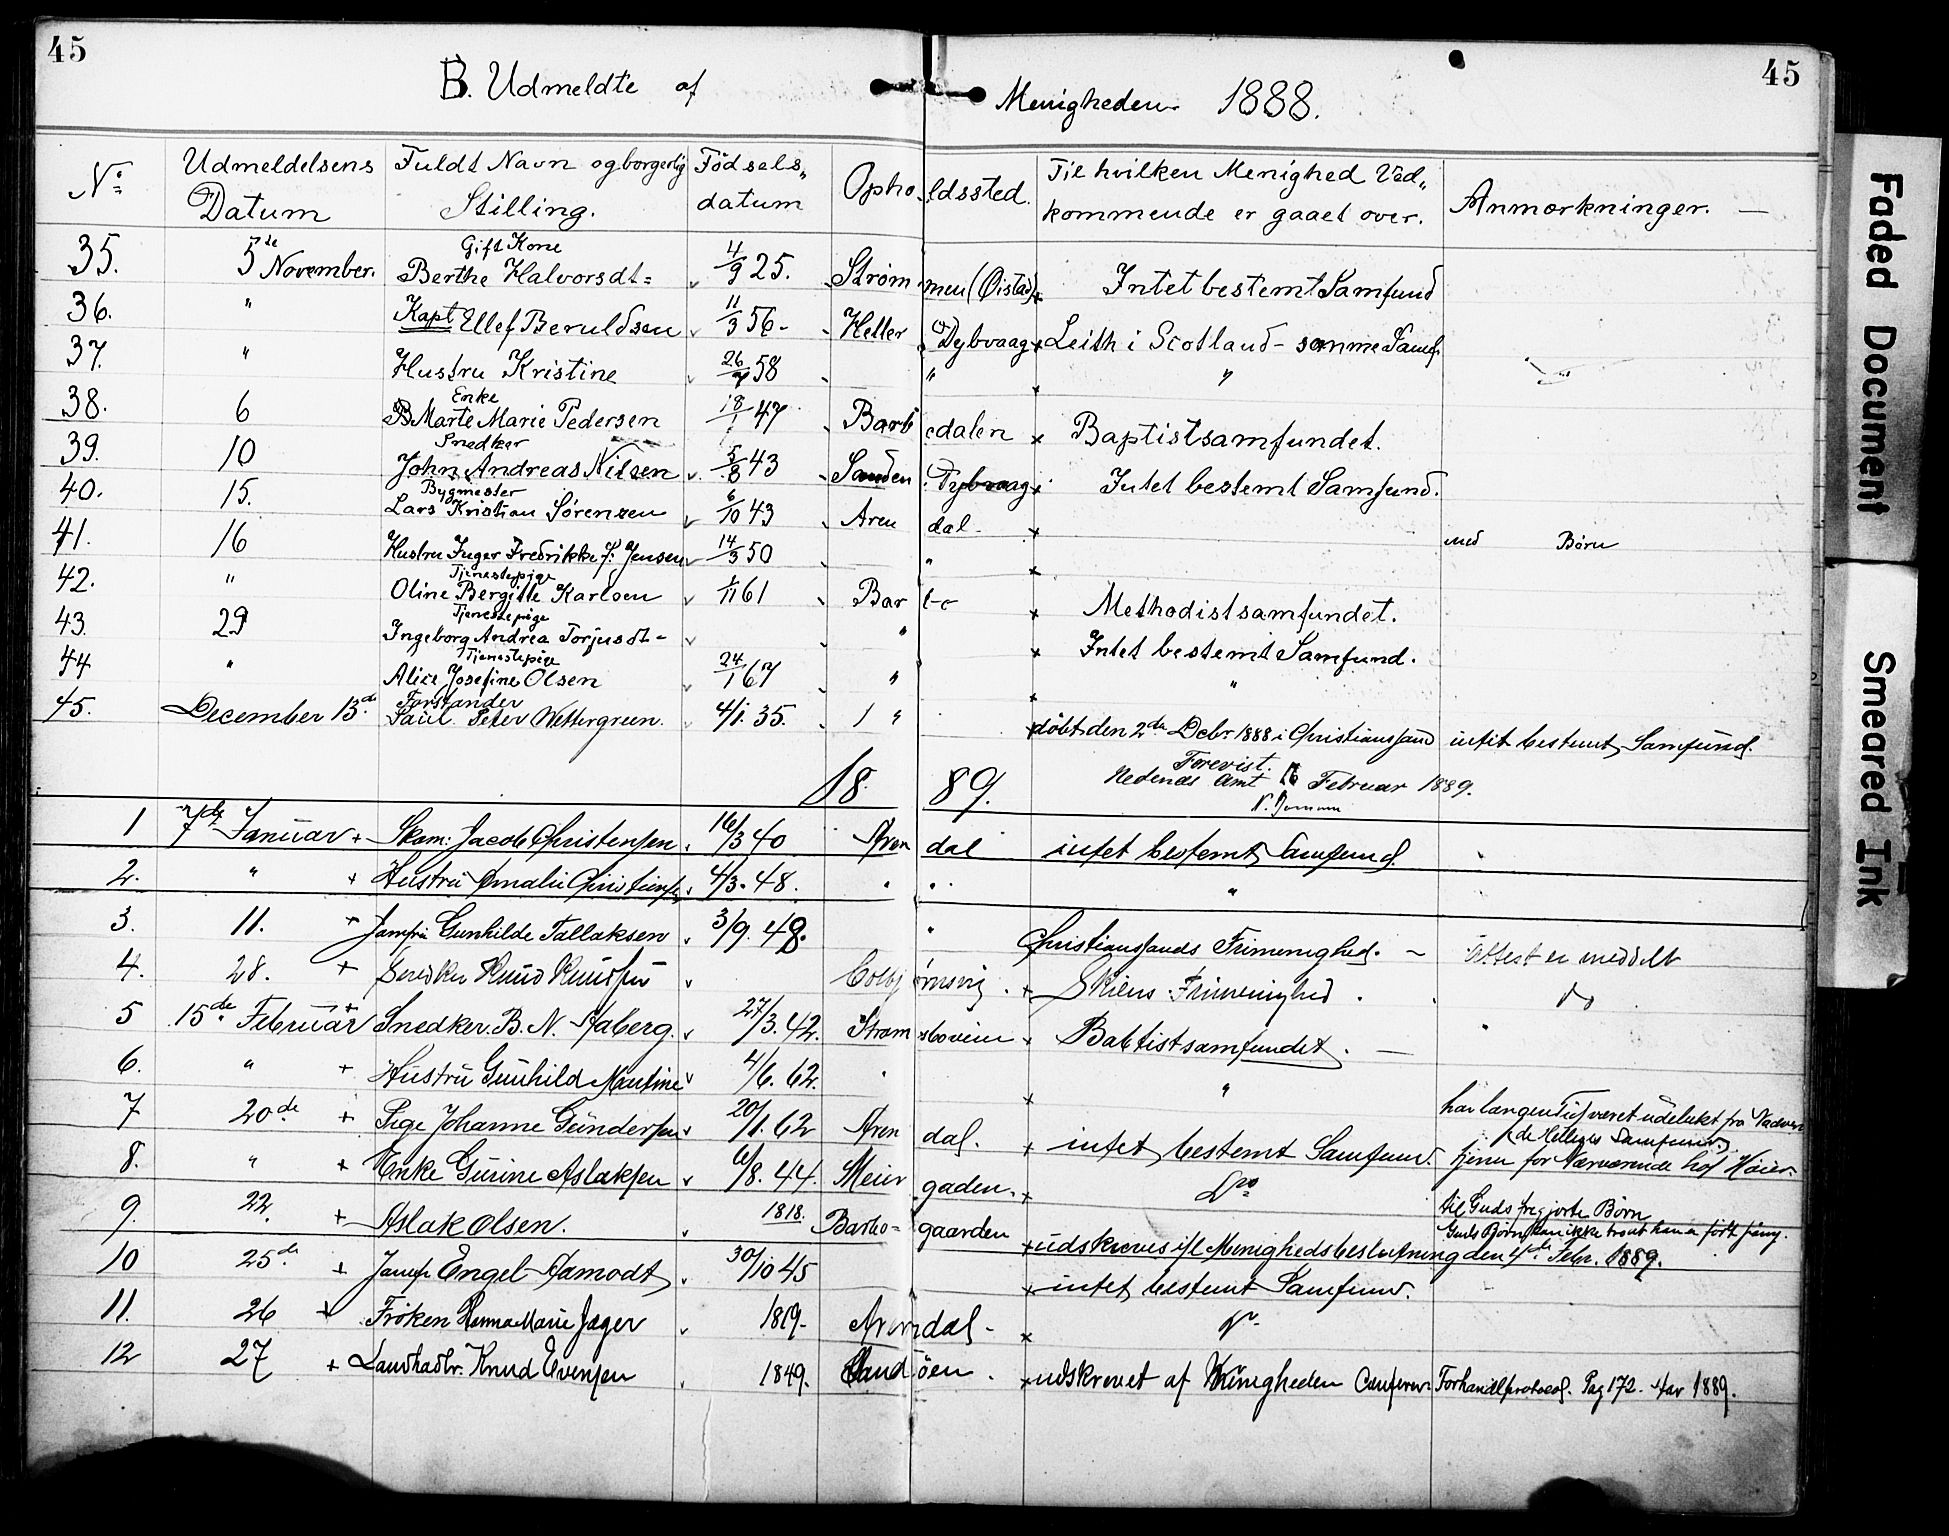 45
45
B. Udmeldte af Menigheden 1888.
No Udmeldelsens Datum Fuldt Navn og borgerlig Stilling. Födsels„ datum Opholdssted. Til hvilken Menighed Ved„ kommende er gaaet over. Anmærkninger. —
35. 5te November. Gift Kone Berthe Halvorsdt= 4/9 25. Strømmen (Øistad) Intet bestemt Samfund
36. " Kapt Ellef Beruldsen 11/3 56- Heller Dybvaag Leith i Scotland - samme Samf
37. " Hustru Kristine 26/7 58 " "
38. 6 Enke B Marte Marie Pedersen 18/1 47 Barbodalen Baptistsamfundet.
39. 10 Snedker John Andreas Nilsen 5/8 43 Sanden Dybvaag Intet bestemt Samfund.
40. 15. Bygmester Lars Kristian Sörensen 6/10 43 Arendal-
41. 16 Hustru Inger Fredrikke F. Jensen 14/3 50 " med Börn
42. " Tjenestepige Oline Bergitte Karlsen 1/11 61 Barbo Methodistsamfundet.
43. 29 Tjenestepige Ingeborg Andrea Torjusdt- " Intet bestemt Samfund.
44 " Tjenestepige Alice Josefine Olsen 24/1 67 " "
45. December 13de Forstander Paul Peter Wettergreen. 4/1. 35. " döbt den 2de Debr 1888 i Christianssand intet bestemt Samfund.
1889.
Forevist.
Nedenes Amt 16 Februar 1889.
1 7de Januar + Skom: Jacob Christensen 16/3 40 Arendal intet bestemt Samfund
2. " + Hustru Amalie Christensen 4/3. 48. " " "
3. 11. + Jomfru Gunhilde Tallaksen 3/9. 48. " Christianssands Frimenighed. - Attest er meddelt
4. 28. + Snedker Knud Knudsen Colbjørnsvig. Skiens Frimenighed. do
5 15de Februar + Snedker B. N. Aaberg. 27/3. 42. Strømsboveien Babtistsamfundet. — "
6. " + Hustru Gunhild Martine 4/6. 62. " "
7 20de + Pige Johanne Gundersen 20/1. 62 Arendal. intet bestemt Samfund. har længen Tid været udelukt fra Nadver
/de Helliges Samfund
8. " + Enke Gurine Aslaksen 6/8. 44. Meiergaden. Do tjener for Nærværende hos Höier
9. 22. + Aslak Olsen. 1818. Barbogaarden udskreves ifl Menighedsbeslutning den 4de Febr. 1889. til Guds frigjorte Börn
Guds Börn kan ikke
10 25de + Jomfr Engel Aamodt 30/10 45 intet bestemt Samfund.
11. 26 + Fröken Hanna Marie Jæger 1819- Arendal- do
12 27 + Landhadlr. Knud Evensen 1849. Sandöen. udskrevet af Menigheden Conferer Forhandlprotocol. Pag 172. Aar 1889.
Faded Document
Smeared Ink